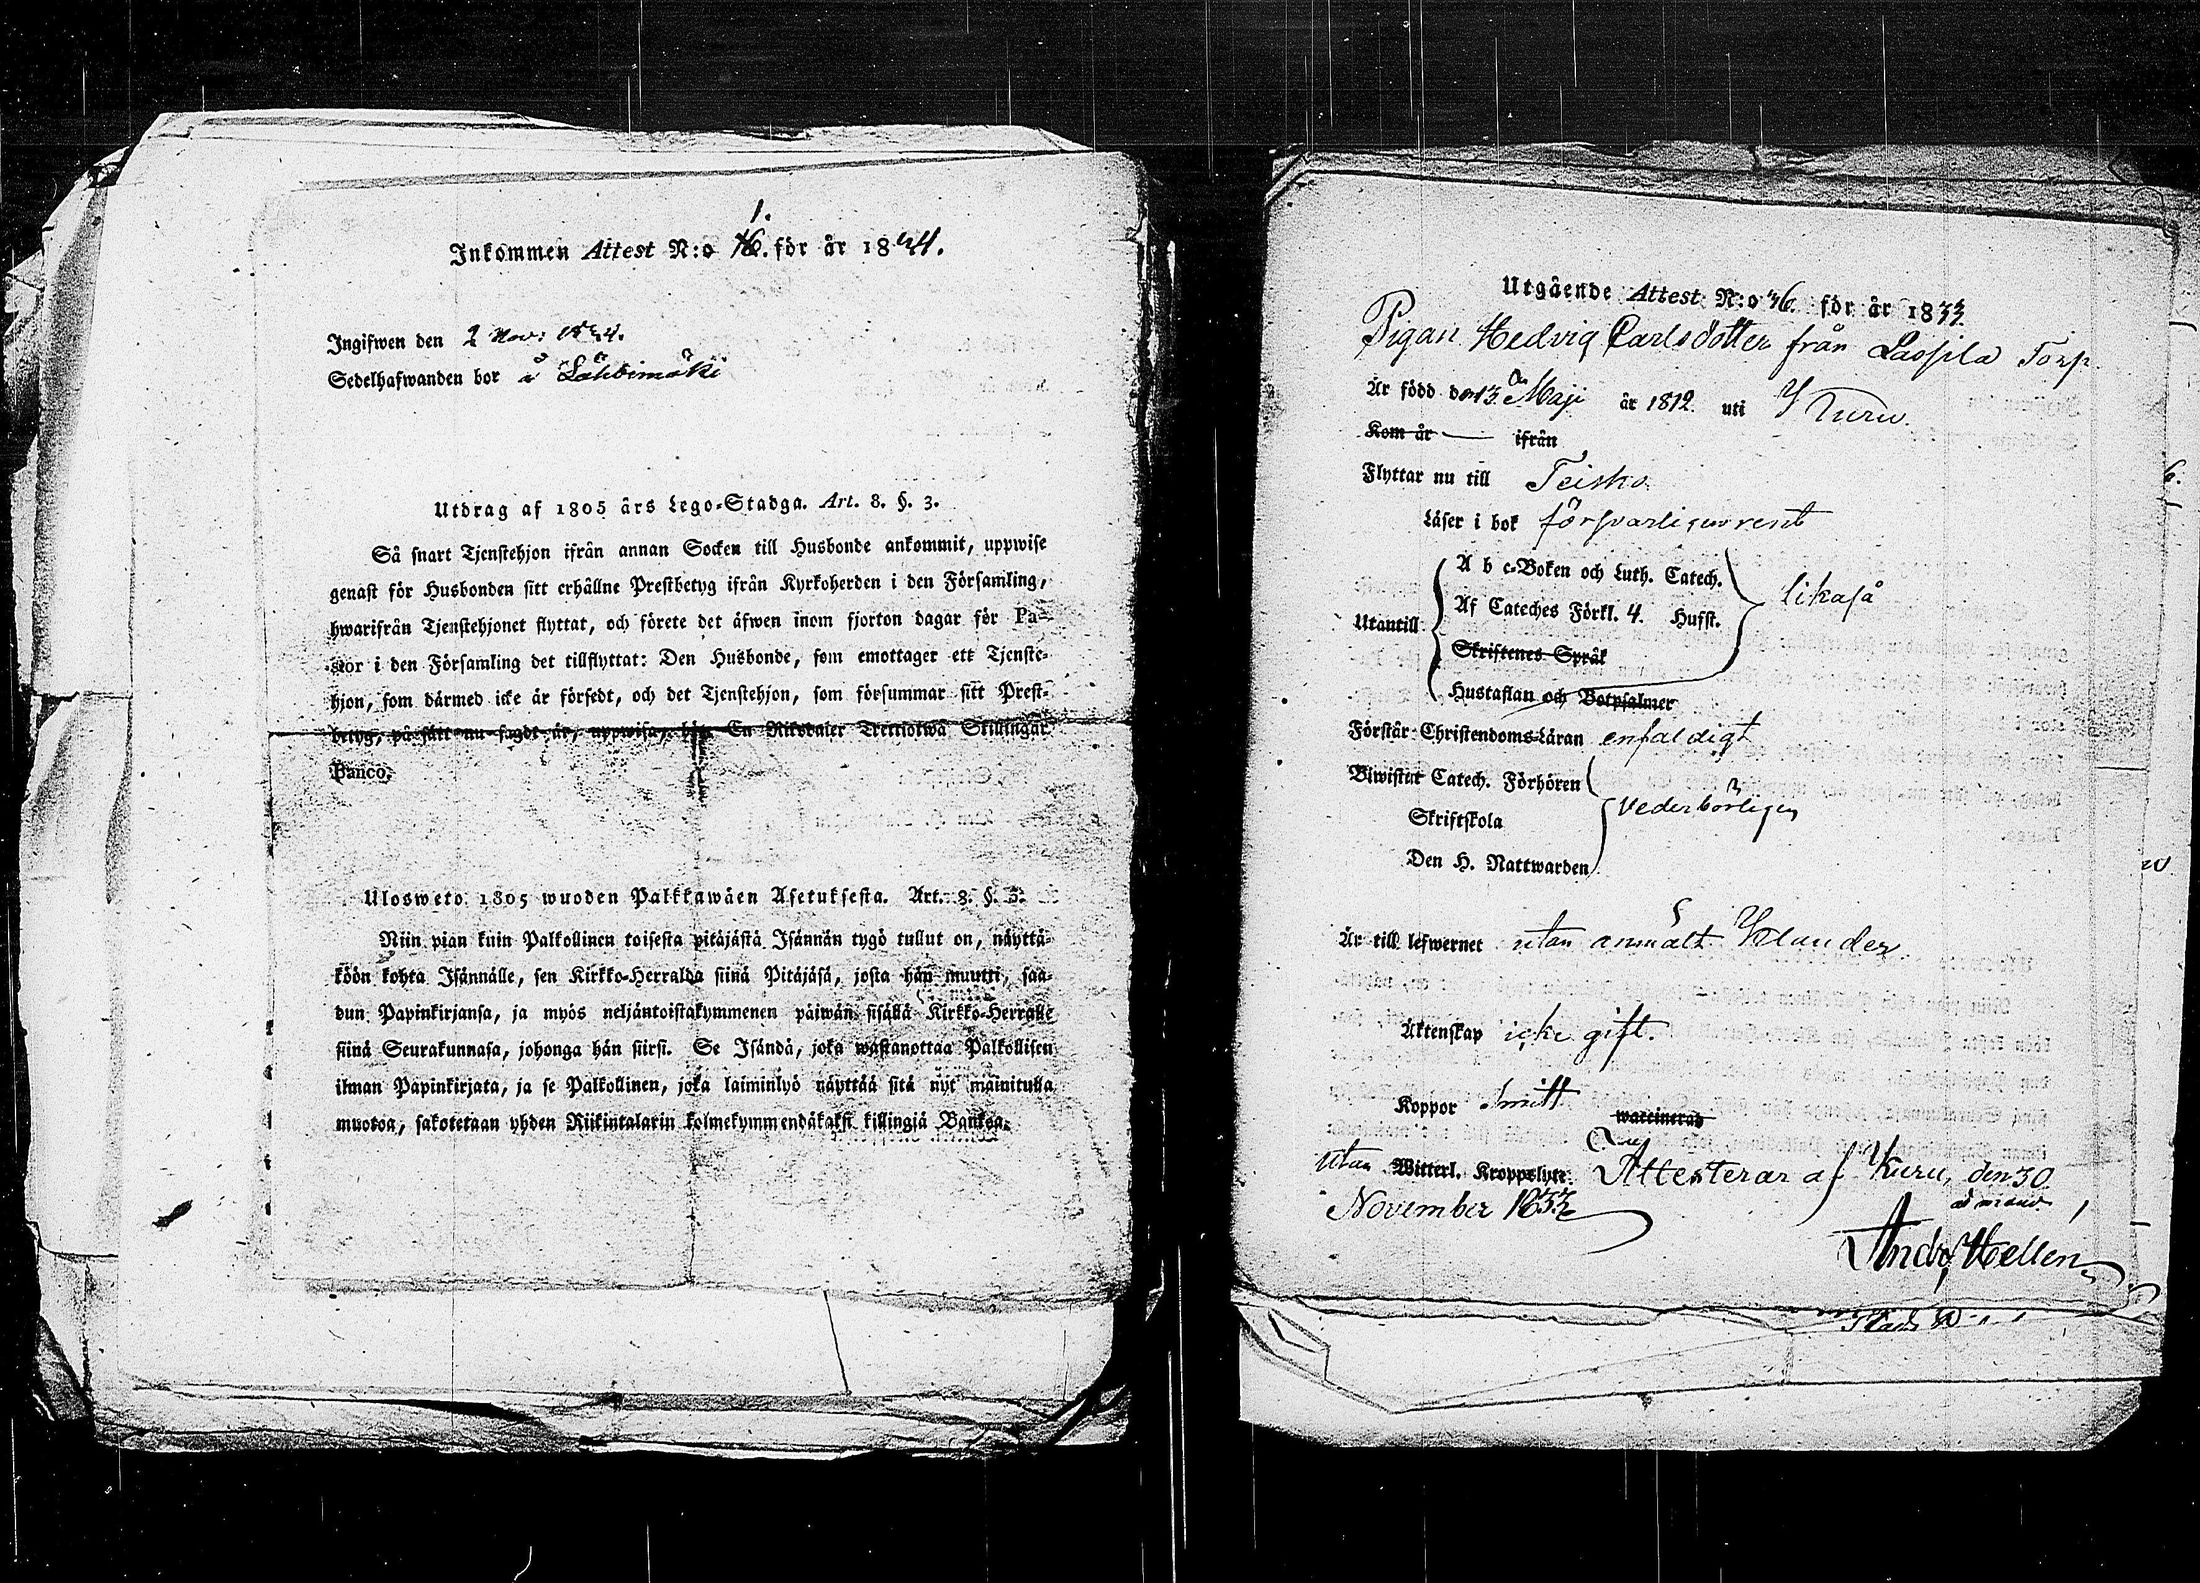 1.
Inkommen Attest N:o 16. för år 1834.
Ingifwen den 2 Nov: 1834.
Sedelhafwanden bor å Lähdimäki
Utdrag af 1805 års Lego-Stadga. Art. 8. §. 3.
Så snart Tjenstehjon ifrån annan Socken till Husbonde ankommit, uppwise
genast för Husbonden sitt erhållne Prestbetyg ifrån Kyrkoherden i den Församling,
hwarifrån Tjenstehjonet flyttat, och förete det äfwen inom fjorton dagar för Pa-
stor i den Församling det tillflyttat: Den Husbonde, som emottager ett Tjenste-
hjon, som därmed icke är försedt, och det Tjenstehjon, som försummar sitt Prest-
betyg, på sätt nu sagdt är, uppwisa, En Riksdaler Trettiotwå Skillingar
Banco.
Ulosweto 1805 wuoden Palkkawäen Asetuksesta. Art. 8. §. 3.
Niin pian kuin Palkollinen toisesta pitäjästä Isännän tygö tullut on, näyttä-
köön kohta Isännälle, sen Kirkko-Herralda siinä Pitäjäsä, josta hän muutti, saa-
dun Papinkirjansa, ja myös neljäntoistakymmenen päiwän sisällä Kirkko-Herralle
siinä Seurakunnasa, johonga hän siirsi. Se Isändä, joka wastanottaa Palkollisen
ilman Papinkirjata, ja se Palkollinen, joka laiminlyö näyttää sitä nyt mainitulla
muotoa, sakotetaan yhden Riikintalarin kolmekymmendäkaksi killingiä Bankosa.
Utgående Attest N:o 36. för år 1833
Pigan Hedvig Carlsdotter från Lassila Torp
Är född den 13 Maji år 1812 uti Kuru.
Kom år — ifrån
Flyttar nu till Teisko
Läser i bok försvarligen rent
A b c-Boken och Luth. Catech.
Utantill Af Cateches Förkl. 4. Hufst. likaså
Skriftenes Språk
Hustaflan och Botpsalmer
Förstår Christendoms-Läran enfaldigt
Biwistat Catech. Förhören
Skriftskola vederbörligen
Den H. Nattwarden
Är till lefwernet utan anmält klander
Äktenskap icke gift.
Koppor haft waccinerad
utan Witterl. Kroppslyte. Attesterar af Kuru, den 30
November 1833
Hellen